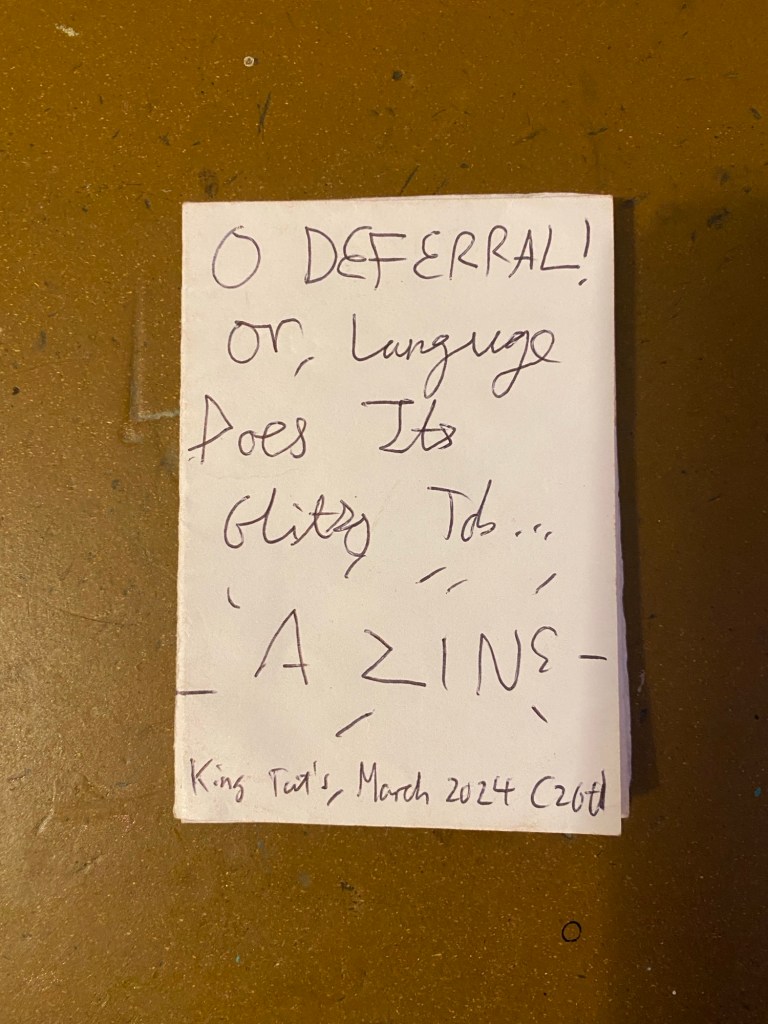 O DEFERRAL!
or, Languge
Does Its
Glitzy Job...
A ZINE
King Tut's, March 2024 (26th